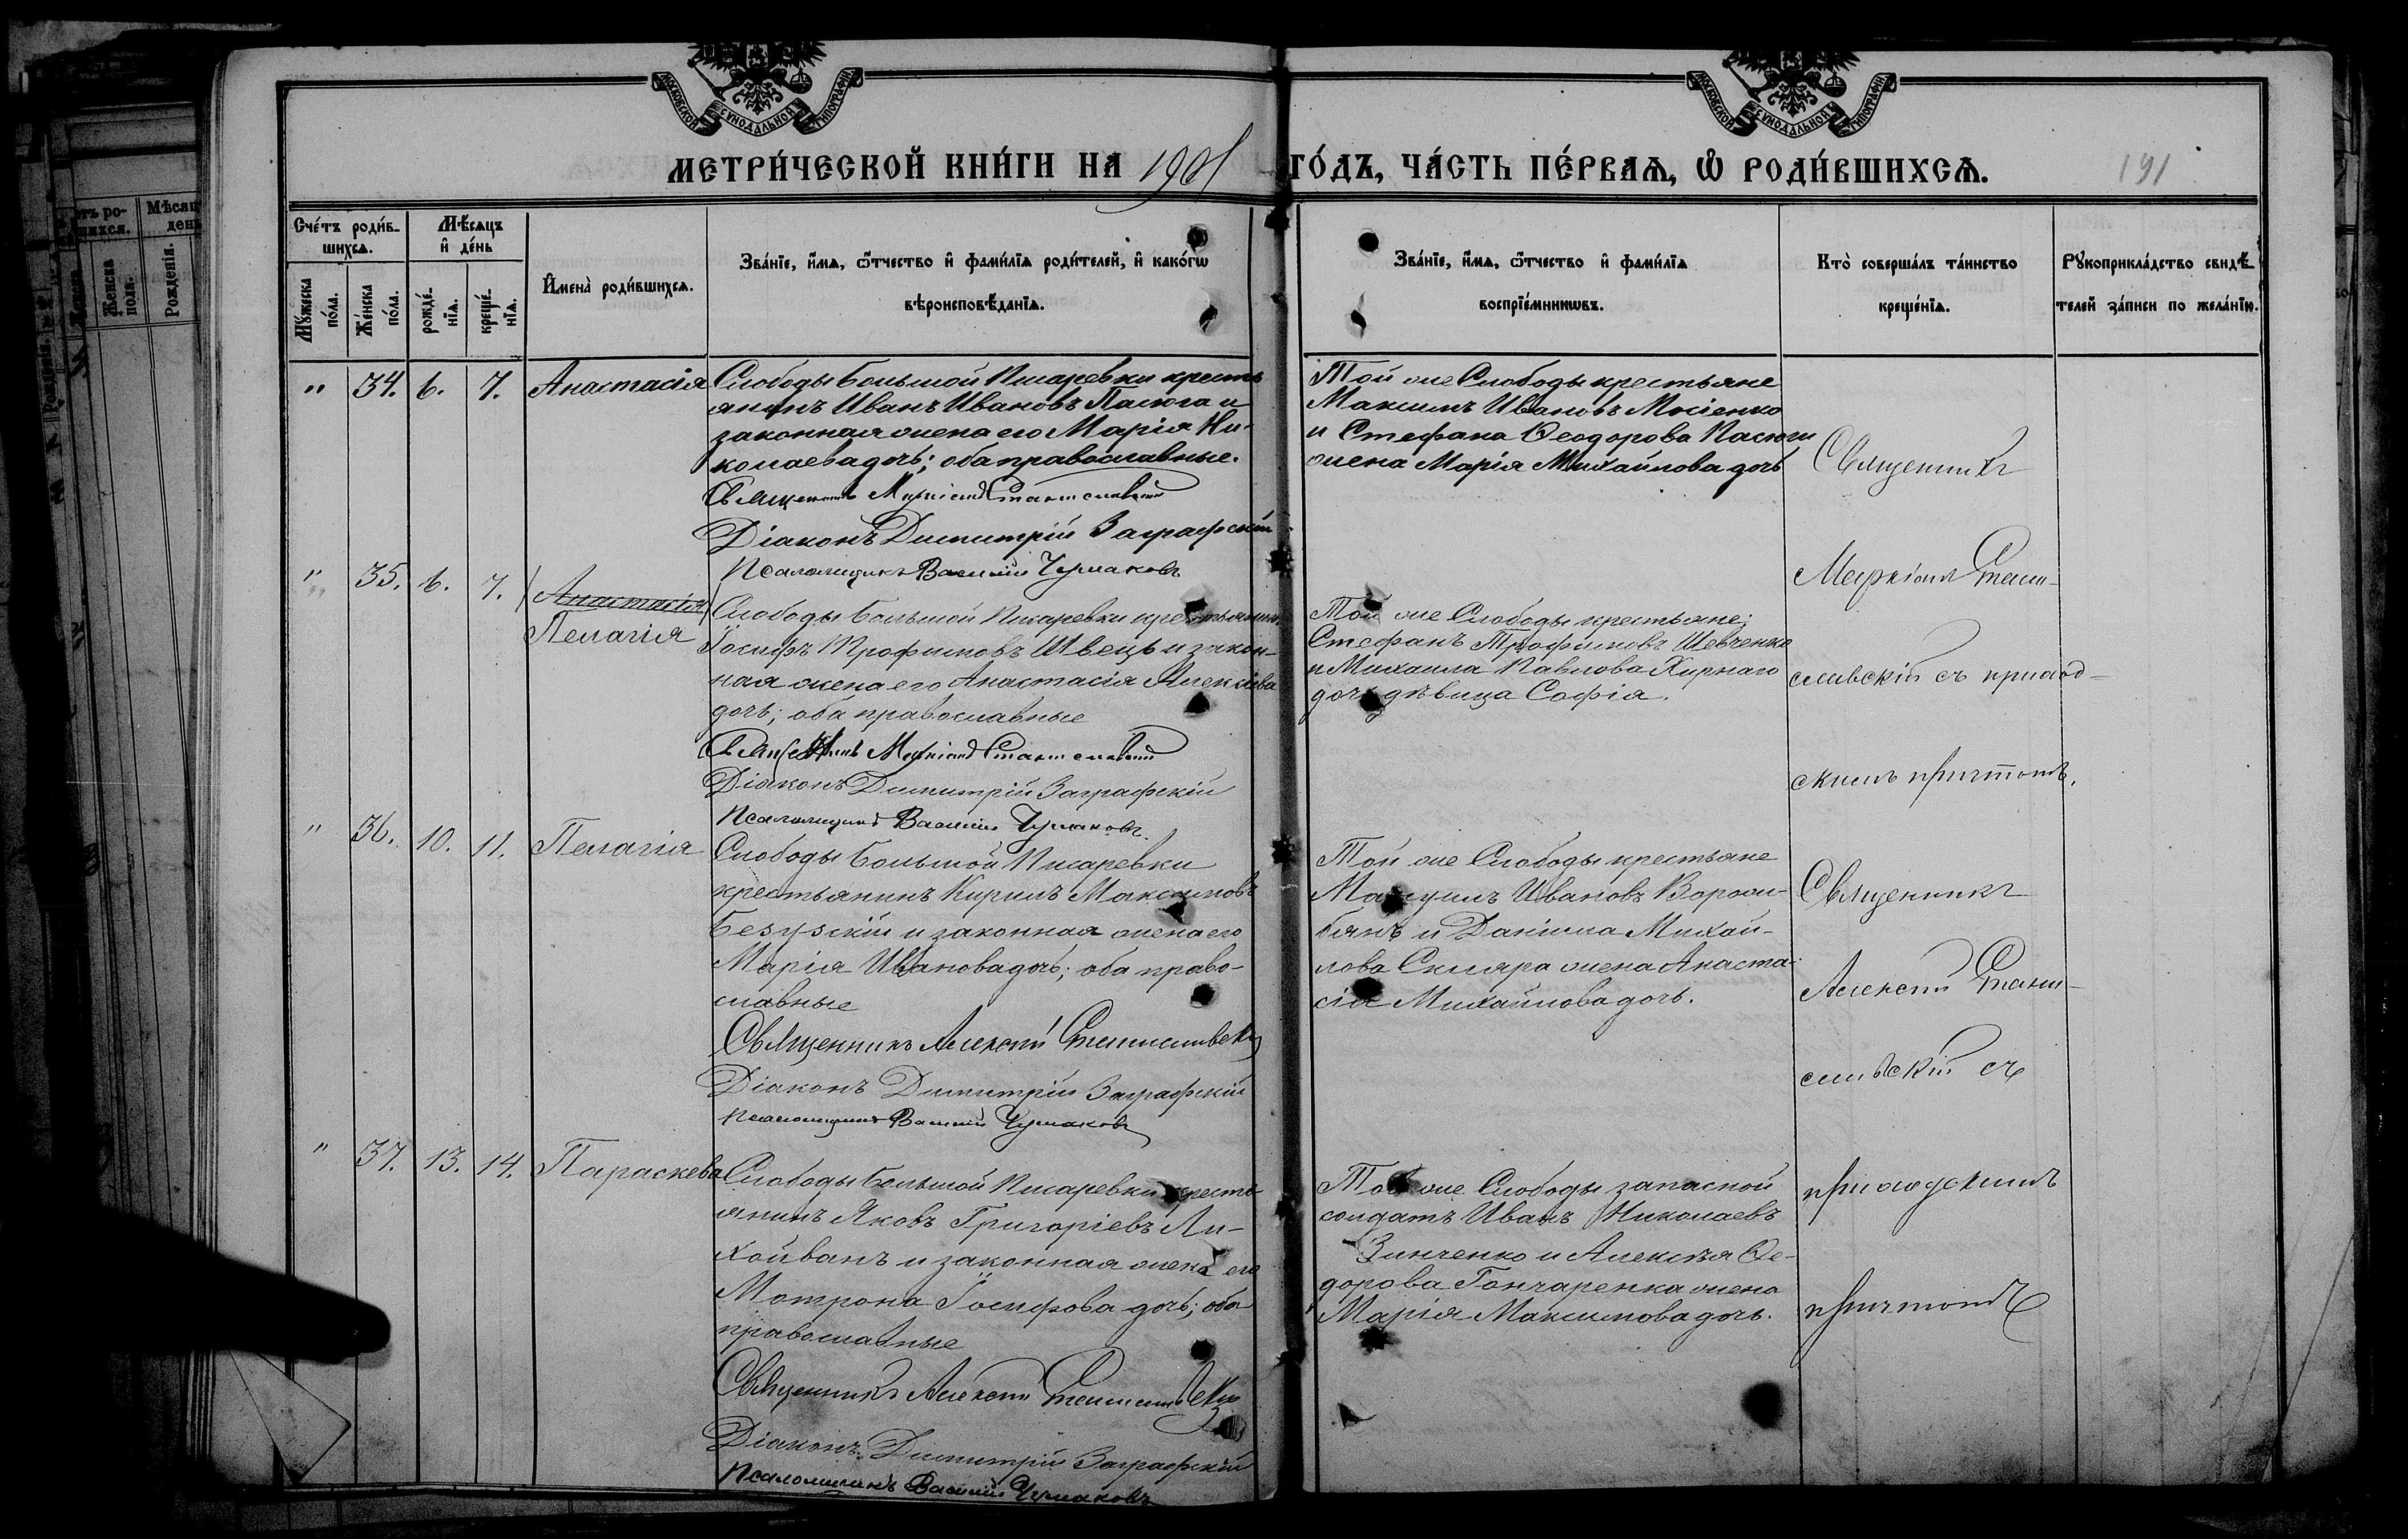 МОСКОВСКОЙ СѴНОДАЛЬНОЙ ТИПОГРАФІИ
МОСКОВСКОЙ СѴНОДАЛЬНОЙ ТИПОГРАФІИ
МЕТРИ́ЧЕСКОЙ КНИ́ГИ НА 1901 ГО́ДЪ, ЧА́СТЬ ПЕ́РВАѦ, Ѡ҆ РОДИ́ВШИХСѦ.
191
Сче́тъ роди́в-
шихсѧ.
Мѣ́сѧцъ
и҆ де́нь
Мꙋ́жеска
по́ла.
Же́нска
по́ла.
рожде́-
нїѧ.
креще́-
нїѧ.
И҆мена̀ роди́вшихсѧ.
Зва́нїе, и҆́мѧ, ѻ҆́тчество и҆ фами́лїѧ роди́телей, и҆ како́гѡ
вѣроисповѣ́данїѧ.
Зва́нїе, и҆́мѧ, ѻ҆́тчество и҆ фами́лїѧ
воспрїе́мникѡвъ.
Кто̀ соверша́лъ та́инство
креще́нїѧ.
Рꙋкоприкла́дство свидѣ́-
телей за́писи по жела́нїю.
" 34. 6. 7. Анастасія
Слободы Большой Писаревки кресть
янинъ Иванъ Ивановъ Пасюга и
законная жена его Марія Ни-
колаева дочь; оба православные.
Священникъ Маркіанъ Станиславскій
Діаконъ Димитрій Заграфскій
Псаломщикъ Василій Чумаковъ
Той же Слободы крестьяне
Максимъ Ивановъ Мосіенко
и Стефана Ѳеодорова Пасюги
жена Марія Михайлова дочь
Священникъ
Маркіанъ Стани-
славскій съ приход-
скимъ причтомъ.
" 35. 6. 7. Анастасія
Пелагія
Слободы Большой Писаревки крестьянинъ
Іосифъ Трофимовъ Швецъ и закон-
ная жена его Анастасія Алексіева
дочь; оба православные
Священникъ Маркіанъ Станиславскій
Діаконъ Димитрій Заграфскій
Псаломщикъ Василій Чумаковъ.
Той же Слободы крестьяне:
Стефанъ Трофимовъ Шевченко
и Михаила Павлова Хирнаго
дочь дѣвица Софія.
" 36. 10. 11. Пелагія
Слободы Большой Писаревки
крестьянинъ Кирилъ Максимовъ
Безускій и законная жена его
Марія Иванова дочь; оба право-
славные
Священникъ Алексій Станиславскій
Діаконъ Димитрій Заграфскій
Псаломщикъ Василій Чумаковъ
Той же Слободы крестьяне
Ивановъ Ворож-
бянъ и Даніила Михай-
лова Скляра жена Анаста-
сія Михайлова дочь.
Священникъ
Алексій Стани-
славскій съ
приходскимъ
причтомъ
" 37. 13. 14. Параскева
Слободы Большой Писаревки кресть-
янинъ Яковъ Григоріевъ Ли-
хойванъ и законная жена его
Мотрона Іосифова дочь; оба
православные
Священникъ Алексій Станиславскій
Діаконъ Димитрій Заграфскій
Псаломщикъ Василій Чумаковъ
Той же Слободы запасной
солдатъ Иванъ Николаевъ
Зинченко и Алексѣя Ѳе-
дорова Гончаренка жена
Марія Максимова дочь.